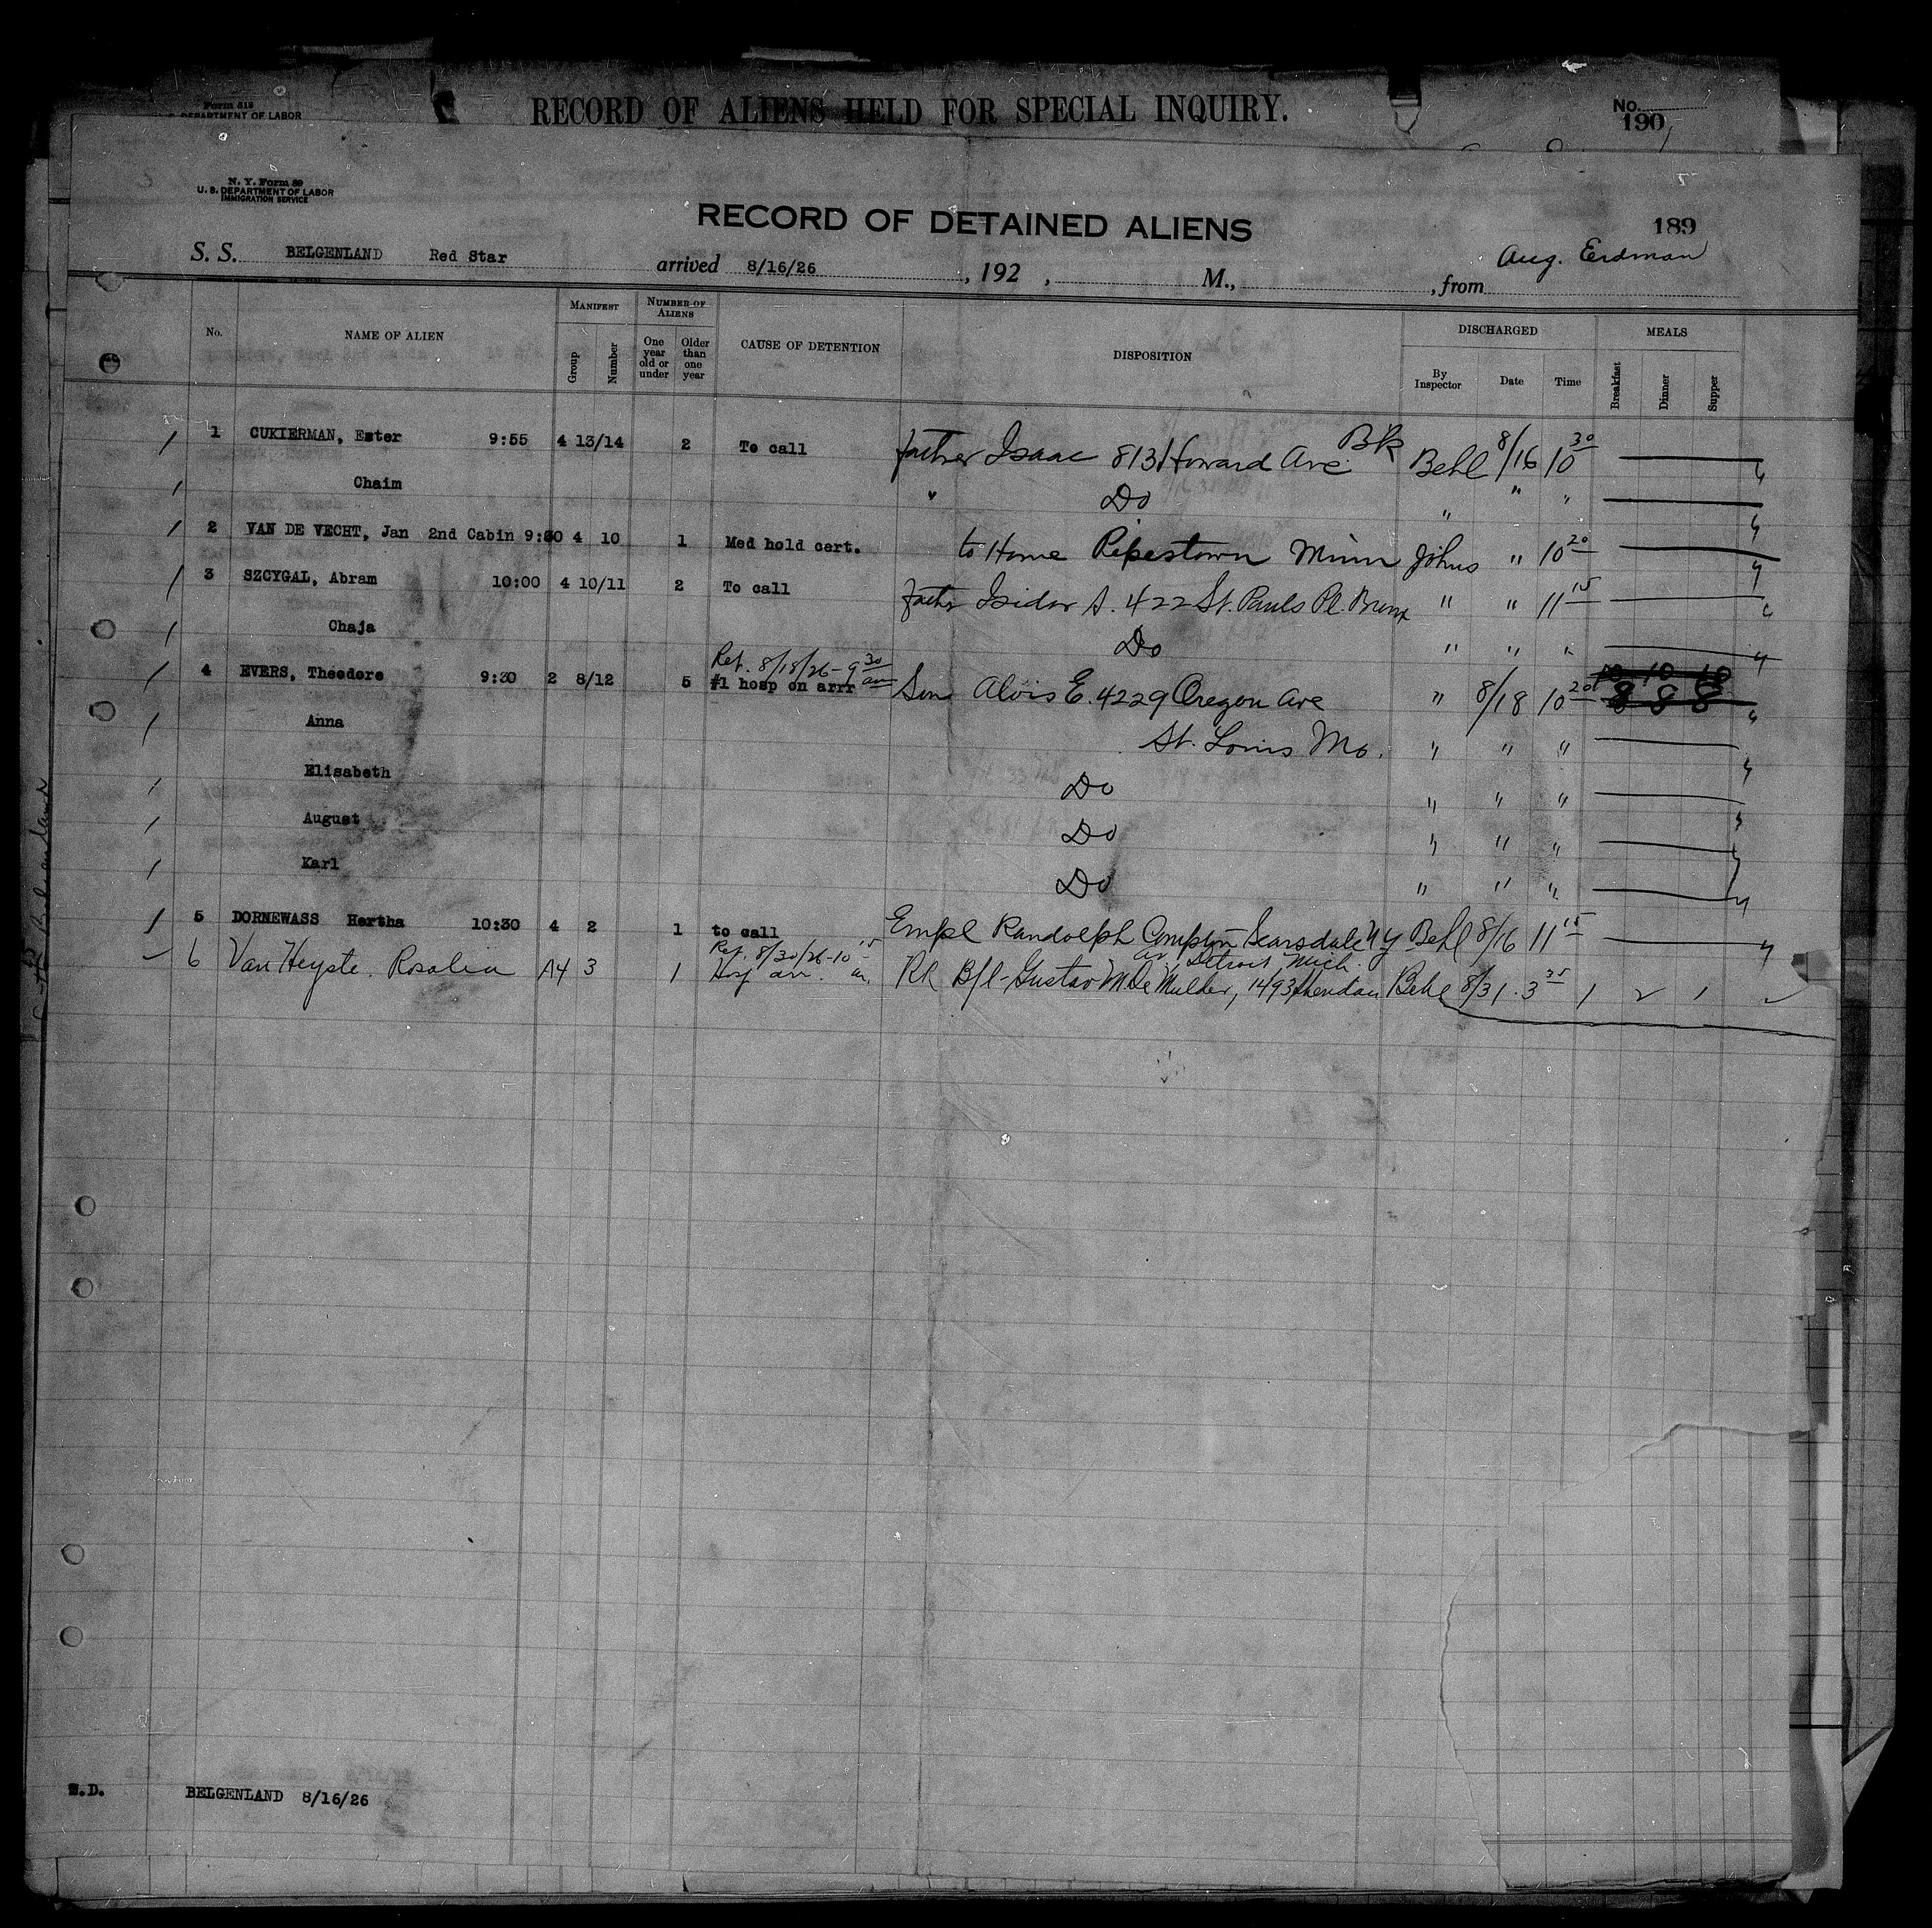 Form 518
DEPARTMENT OF LABOR
RECORD OF ALIENS HELD FOR SPECIAL INQUIRY.
No.
190
N. Y. Form 89
U. S. DEPARTMENT OF LABOR
IMMIGRATION SERVICE
RECORD OF DETAINED ALIENS
189
S. S. BELGENLAND Red Star arrived 8/16/26, 192 , M., , from Aug. Erdman
No. NAME OF ALIEN MANIFEST NUMBER OF ALIENS CAUSE OF DETENTION DISPOSITION DISCHARGED MEALS
Group Number One year old or under Older than one year By Inspector Date Time Breakfast Dinner Supper
1 CUKIERMAN, Ester 9:55 4 13/14 2 To call father Isaac 813 Howard Ave Bk Behl 8/16 10 30
Chaim " Do " " "
2 VAN DE VECHT, Jan 2nd Cabin 4 10 1 Med hold cert. to Home Pipestown Minn Johns " 10 20
3 SZCYGAL, Abram 10:00 4 10/11 2 To call father Isidor S. 422 St. Pauls Pl. Bronx " " 11 15
Chaja Do " " "
Ret. 8/18/26 - 9 30 am 10 10 10
4 EVERS, Theodore 9:30 2 8/12 5 #1 hosp on arrr Son Alois E. 4229 Oregon Ave " 8/18 10 20 8 8 8
Anna St. Louis Mo. " " "
Elisabeth Do " " "
August Do " " "
Karl Do " " "
5 DORNEWASS Hertha 10:30 4 2 1 to call Empl Randolph Compton Scarsdale NY Behl 8/16 11 15
Ret. 8/30/26 - 10 15 Av. Detroit, Mich.
6 Van Heyste. Rosalia A4 3 1 Hosp arr. am. RR B/l - Gustav M De Mulder, 1493 Sheridan Behl 8/31 3 35 1 2 1
W.D. BELGENLAND 8/16/26